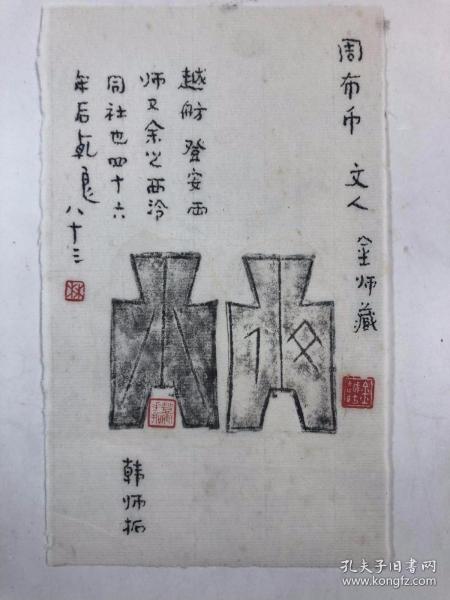 周布币 文人 金师藏
越舫 登安两
师又余之西泠
同社也四十六
年后乾良
八十三
韩师拓
孔夫子旧书网
www.kongfz.com